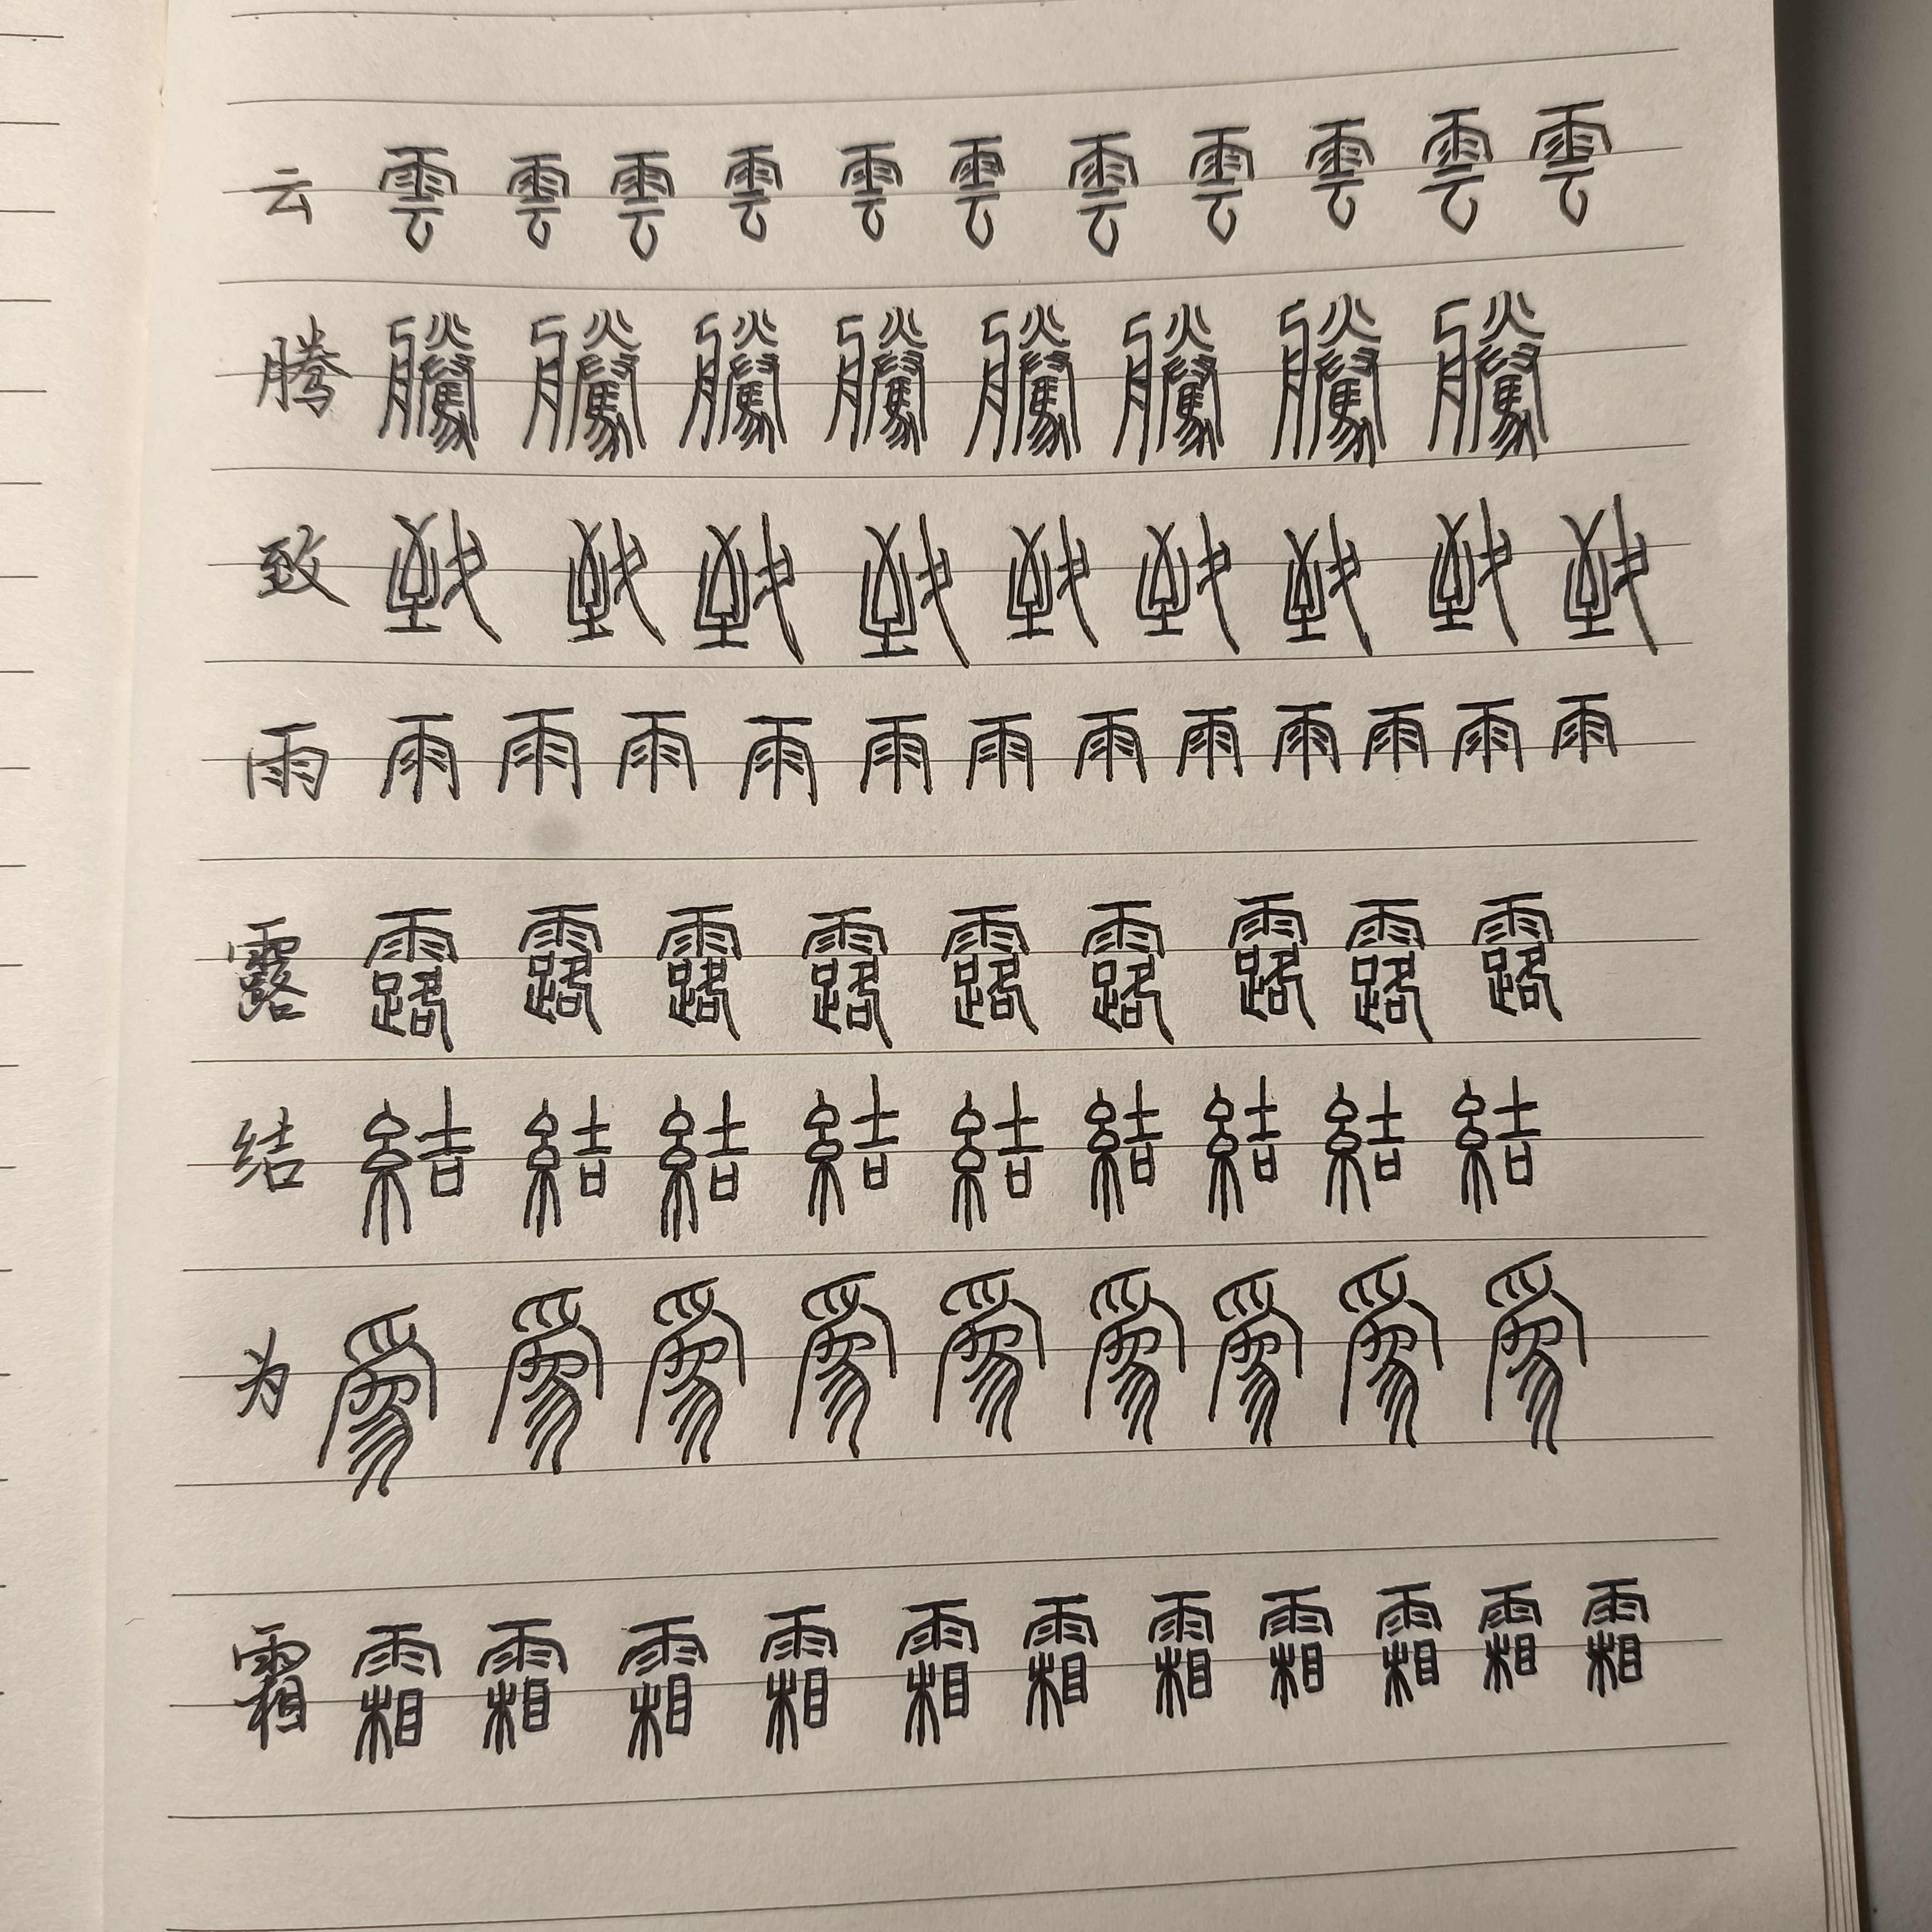 云 雲 雲 雲 雲 雲 雲 雲 雲 雲 雲 雲
腾 騰 騰 騰 騰 騰 騰 騰 騰
致 致 致 致 致 致 致 致 致 致
雨 雨 雨 雨 雨 雨 雨 雨 雨 雨 雨 雨 雨
露 露 露 露 露 露 露 露 露 露
结 結 結 結 結 結 結 結 結 結
为 爲 爲 爲 爲 爲 爲 爲 爲 爲
霜 霜 霜 霜 霜 霜 霜 霜 霜 霜 霜 霜